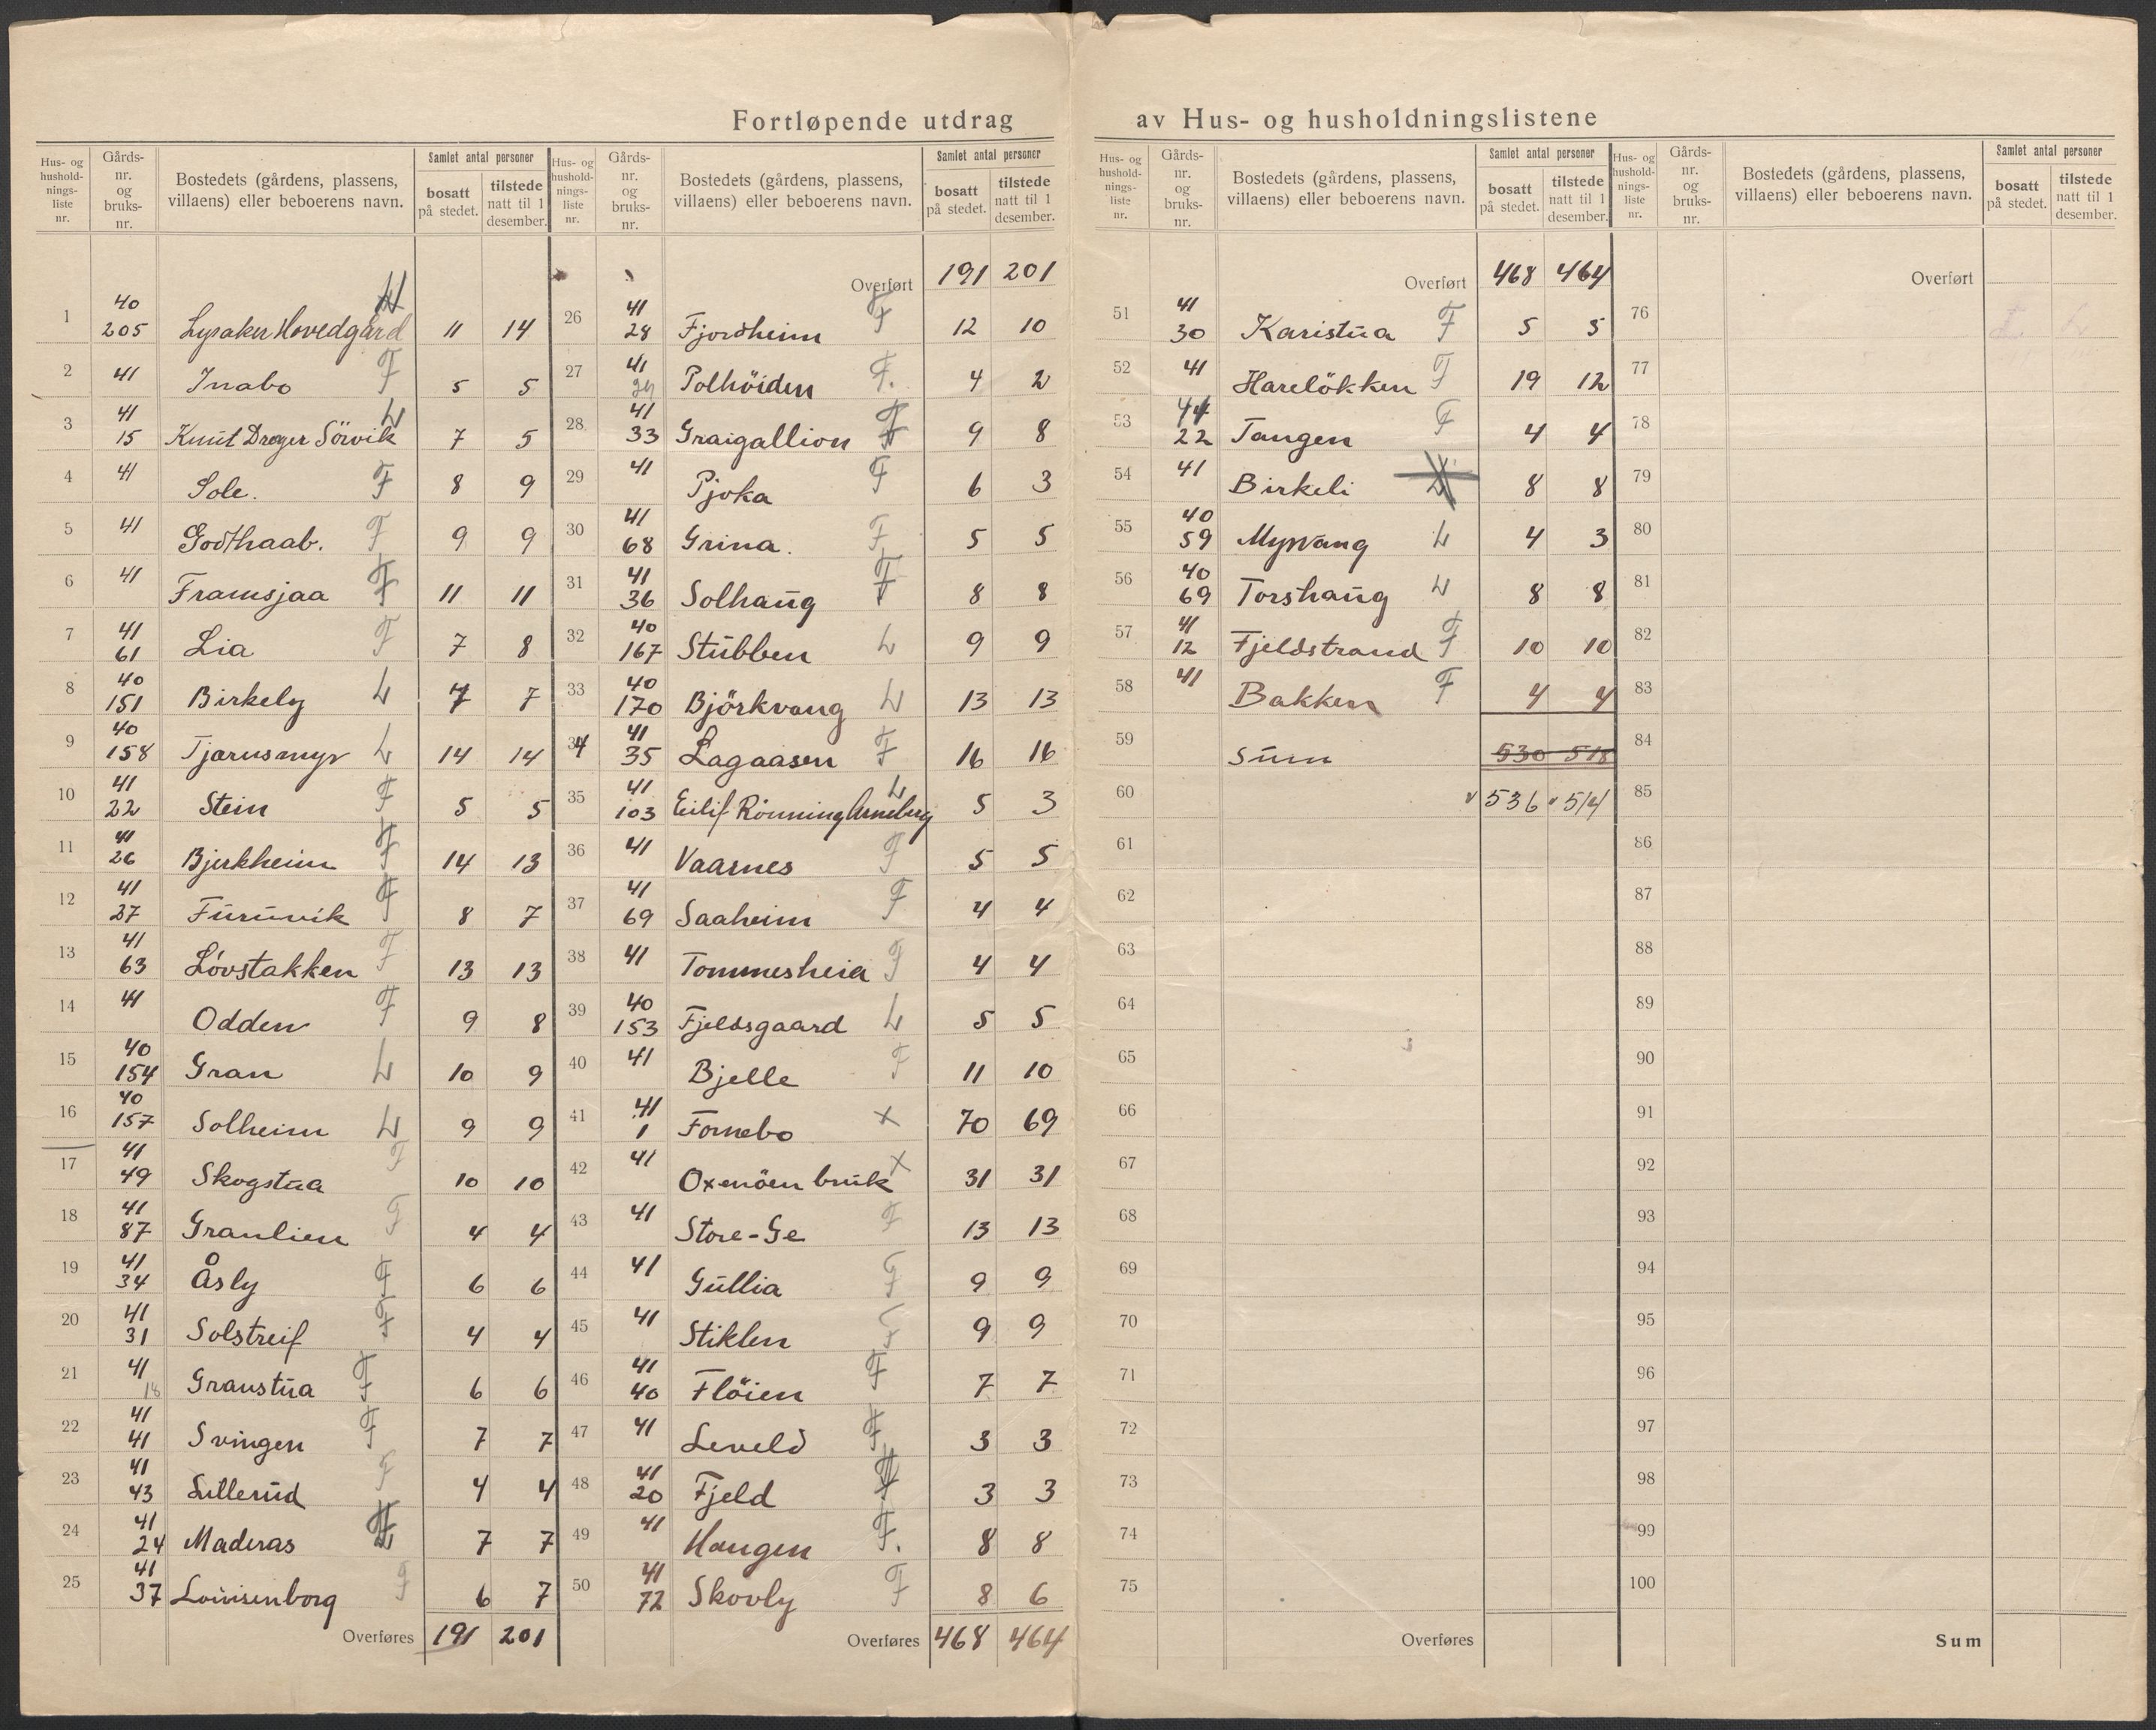 Fortløpende utdrag av Hus- og husholdningslistene
Hus- og hushold-nings-liste nr. | Gårds-nr. og bruks-nr. | Bostedets (gårdens, plassens, villaens) eller beboerens navn. | Samlet antal personer | bosatt på stedet. | tilstede natt til 1 desember.
1 40 205 Lysaker Hovedgård 11 14
2 41 Inabo F 5 5
3 41 15 Knut Drager Sörvik L 7 5
4 41 Sole. F 8 9
5 41 Godthaab. F 9 9
6 41 Framsjaa F 11 11
7 41 61 Lia F 7 8
8 40 151 Birkely L 7 7
9 40 158 Tjærusmyr L 14 14
10 41 22 Stein F 5 5
11 41 26 Bjerkheim F 14 13
12 41 27 Furuvik F 8 7
13 41 63 Lövstakken F 13 13
14 41 Odden F 9 8
15 40 154 Gran L 10 9
16 40 157 Solheim L 9 9
17 41 49 Skogstua F 10 10
18 41 87 Granlien F 4 4
19 41 34 Åsly F 6 6
20 41 31 Solstreif F 4 4
21 41 18 Granstua F 6 6
22 41 41 Svingen F 7 7
23 41 43 Lillerud F 4 4
24 41 24 Maderas F 7 7
25 41 37 Lovisenborg F 6 7
Overføres 191 201
Hus- og hushold-nings-liste nr. | Gårds-nr. og bruks-nr. | Bostedets (gårdens, plassens, villaens) eller beboerens navn. | Samlet antal personer | bosatt på stedet. | tilstede natt til 1 desember.
Overført 191 201
26 41 28 Fjordheim F 12 10
27 41 Polhöiden F. 4 2
28 41 33 Graigallion F 9 8
29 41 Pjoka F 6 3
30 41 68 Grina. F 5 5
31 41 36 Solhaug F 8 8
32 40 167 Stubben L 9 9
33 40 170 Björkvang L 13 13
34 41 35 Lagaasen F 16 16
35 41 103 Eilif Rönning Arneberg L 5 3
36 41 Vaarnes F 5 5
37 41 69 Saaheim F 4 4
38 41 Tommesheia F 4 4
39 40 153 Fjeldsgaard L 5 5
40 41 Bjelle F 11 10
41 41 1 Fornebo x 70 69
42 41 Oxenöen bruk x 31 31
43 41 Store-Ge F 13 13
44 41 Gullia F 9 9
45 41 Stiklen F 9 9
46 41 40 Flöien F 7 7
47 41 Leveld F 3 3
48 41 20 Fjeld 3 3
49 41 Haugen F. 8 8
50 41 72 Skovly F 8 6
Overføres 468 464
Hus- og hushold-nings-liste nr. | Gårds-nr. og bruks-nr. | Bostedets (gårdens, plassens, villaens) eller beboerens navn. | Samlet antal personer | bosatt på stedet. | tilstede natt til 1 desember.
Overført 468 464
51 41 30 Karistua F 5 5
52 41 Harelökken F 19 12
53 41 22 Tangen F 4 4
54 41 Birkeli 8 8
55 40 59 Myrvang L 4 3
56 40 69 Torshaug L 8 8
57 41 12 Fjeldstrand F 10 10
58 41 Bakken F 4 4
59 Sum 530 518
60 536 514
61
62
63
64
65
66
67
68
69
70
71
72
73
74
75
Overføres
Hus- og hushold-nings-liste nr. | Gårds-nr. og bruks-nr. | Bostedets (gårdens, plassens, villaens) eller beboerens navn. | Samlet antal personer | bosatt på stedet. | tilstede natt til 1 desember.
Overført
76
77
78
79
80
81
82
83
84
85
86
87
88
89
90
91
92
93
94
95
96
97
98
99
100
Sum